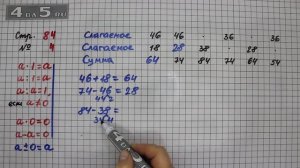 4 DS RU
Стр. 84
№ 4
Слагаемое 46 46 · 36 · 36
Слагаемое 18 28 38 · 28 ·
Сумма 64 74 84 74 64 54
a · 1 = a
a : 1 = a
a : a = 1,
если a ≠ 0
a · 0 = 0
a - a = 0
a ± 0 = a
46 + 18 = 64
74 - 46 = 28
84 - 38 =